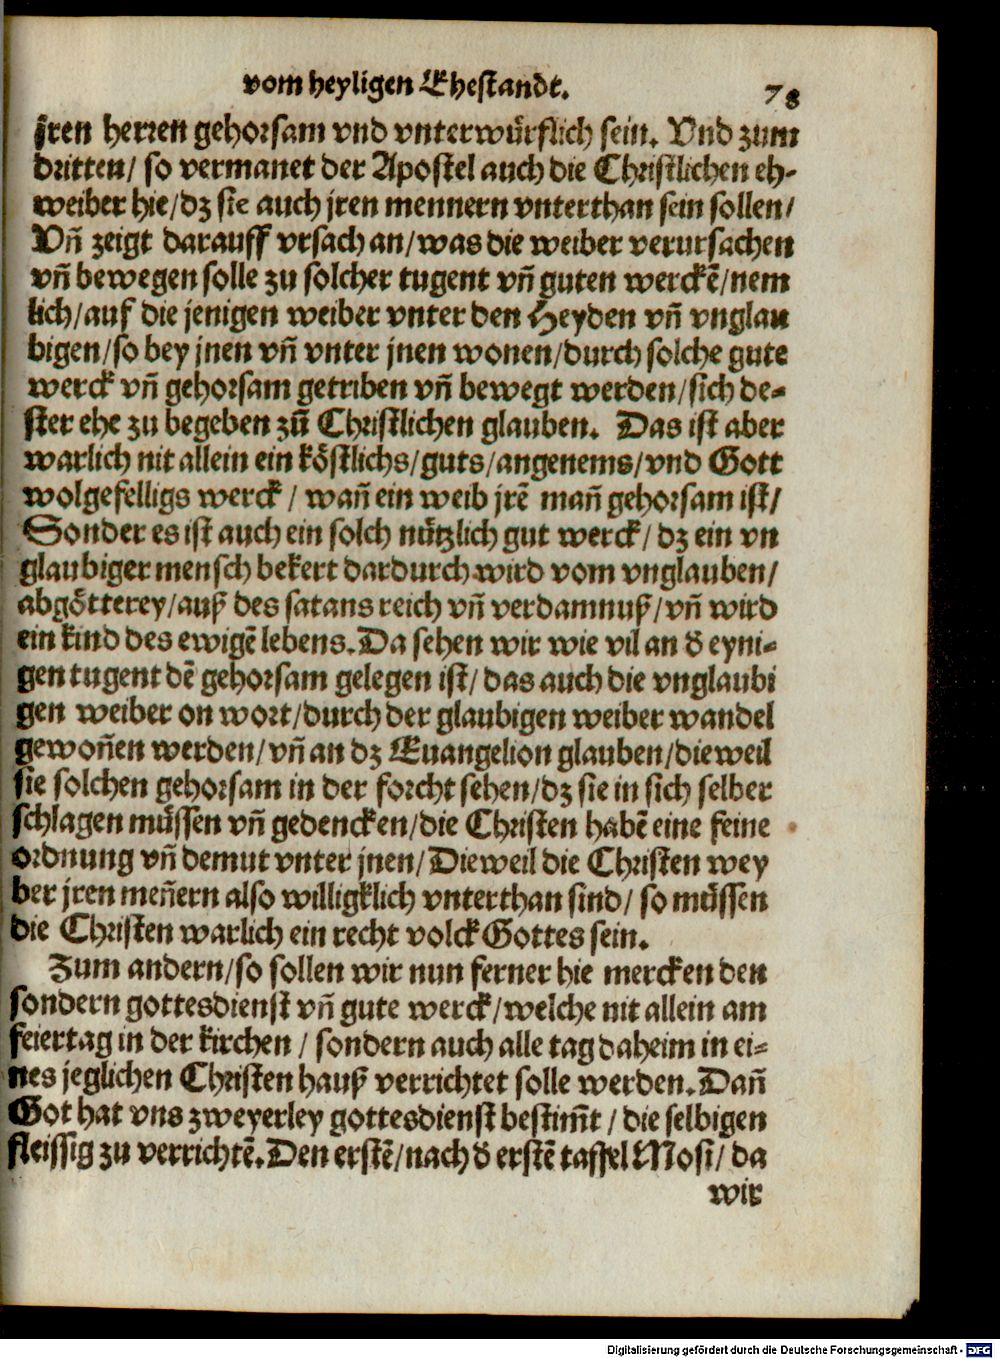 vom heyligen Ehestandt. 78
jren herren gehorsam vnd vnterwürflich sein. Vnd zum
dritten/ so vermanet der Apostel auch die Christlichen eh-
weiber hie/dz sie auch jren mennern vnterthan sein sollen/
Vn̄ zeigt darauff vrsach an/was die weiber verursachen
vn̄ bewegen solle zu solcher tugent vn̄ guten werckē/nem
lich/auf die jenigen weiber vnter den Heyden vn̄ vnglau
bigen/so bey jnen vn̄ vnter jnen wonen/durch solche gute
werck vn̄ gehorsam getriben vn̄ bewegt werden/sich de-
ster ehe zu begeben zū Christlichen glauben. Das ist aber
warlich nit allein ein köstlichs/guts/angenems/vnd Gott
wolgefelligs werck / wan̄ ein weib jrē man̄ gehorsam ist/
Sonder es ist auch ein solch nützlich gut werck/ dz ein vn
glaubiger mensch bekert dardurch wird vom vnglauben/
abgötterey/auß des satans reich vn̄ verdamnuß/vn̄ wird
ein kind des ewigē lebens. Da sehen wir wie vil an d̕ eyni-
gen tugent dē gehorsam gelegen ist/ das auch die vnglaubi
gen weiber on wort/durch der glaubigen weiber wandel
gewon̄en werden/vn̄ an dz Euangelion glauben/dieweil
sie solchen gehorsam in der forcht sehen/dz sie in sich selber
schlagen müssen vn̄ gedencken/die Christen habē eine feine
ordnung vn̄ demut vnter jnen/Dieweil die Christen wey
ber jren men̄ern also willigklich vnterthan sind/ so müssen
die Christen warlich ein recht volck Gottes sein.
Zum andern/so sollen wir nun ferner hie mercken den
sondern gottesdienst vn̄ gute werck/welche nit allein am
feiertag in der kirchen / sondern auch alle tag daheim in ei-
nes jeglichen Christen hauß verrichtet solle werden. Dan̄
Got hat vns zweyerley gottesdienst bestim̄t / die selbigen
fleissig zu verrichtē. Den erstē/nach d̕ erstē taffel Mosi/ da
wir
Digitalisierung gefördert durch die Deutsche Forschungsgemeinschaft - DFG